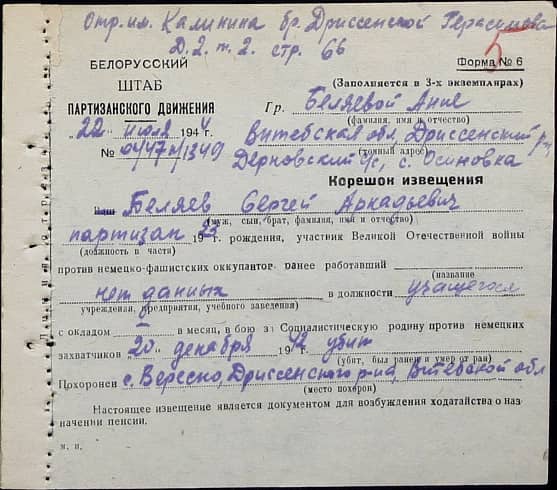 Отр. им. Калинина бр. Дриссенской Герасимова
Д. 2. т. 2. стр. 66
5
БЕЛОРУССКИЙ
ШТАБ
ПАРТИЗАНСКОГО ДВИЖЕНИЯ
22 июля 1944 г.
№ 04/47н/1349
Форма № 6
(Заполняется в 3-х экземплярах)
Гр. Беляевой Анне
(фамилия, имя и отчество)
Витебская обл, Дриссенский р-н
(точный адрес)
Дерновский с/с, с. Осиновка
Корешок извещения
Ваш Беляев Сергей Аркадьевич
(муж, сын, брат, фамилия, имя и отчество)
партизан 1923 г. рождения, участник Великой Отечественной войны
(должность в части)
против немецко-фашистских оккупантов ранее работавший
(название
нет данных в должности учащегося
учреждения, предприятия, учебного заведения)
с окладом — в месяц, в бою за Социалистическую родину против немецких
захватчиков 20 декабря 1942 убит
(убит, был ранен и умер от ран)
Похоронен с. Вересно, Дриссенского р-на, Витебской обл
(место похорон)
Настоящее извещение является документом для возбуждения ходатайства о на-
значении пенсии.
м. п.